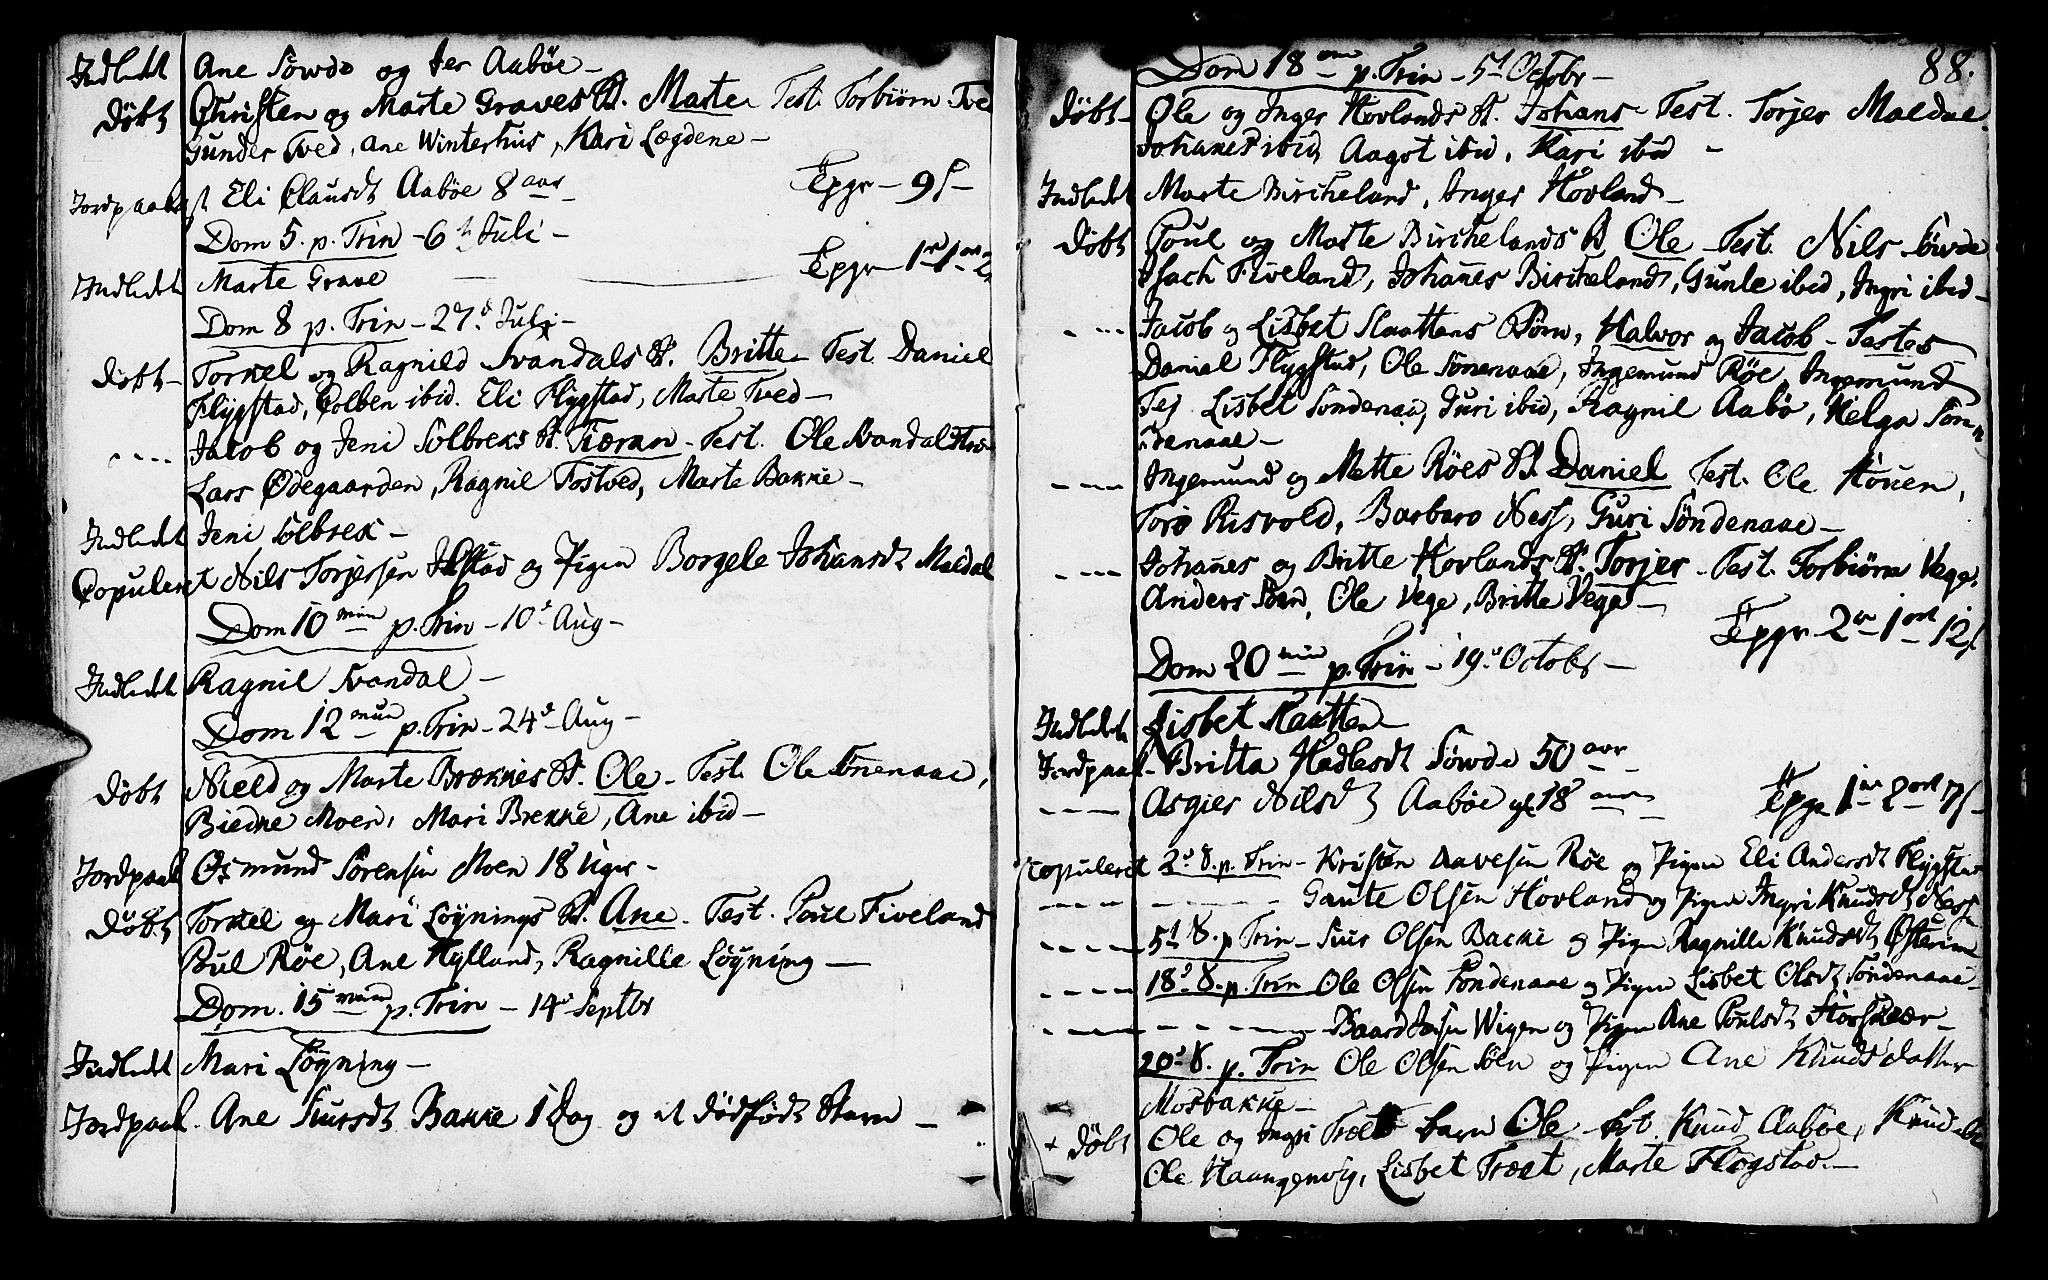 Indledt Ane Søwde og Jer Aabøe –
Døbt Christen og Marte Graves B. Marte Test. Torbiørn Tve
Gunder Tved, Ane Winterhus, Kari Lægdene –
Jordpaakast Eli Clausdt Aabøe 8 aar
Tpgr – 9 s –
Dom 5. p. Trin – 6t Juli –
Indledt Marte Grave
Tpgr 1 1 ort
Dom 8 p. Trin – 27d Juli –
Døbt – Torkel og Ragnild Svandals B. Britte – Test Daniel
Flygstad, Colben ibid. Eli Flygstad, Marte Tved –
---- Jacob og Jeni Solbreks B. Tiæran – Test. Ole Svandal
Lars Ødegaarden, Ragnil Tostved, Marte Bakke –
Indledt Jeni Solbrek –
Copuleret Nils Torjersen og Pigen Borgele Johansdt Maldal
Dom 10 min p. Trin – 10d Aug –
Indledt Ragnil Svandal –
Dom 12 mun p. Trin – 24d Aug –
Døbt Nield og Marte Brækkes B. Ole – Test. Ole Sønenaae,
Moen, Mari Brekke, Ane ibid –
Jordpaak Osmund Sørensen Moen 18 Uger –
Døbt Torkel og Mari Løynings B. Ane – Test. Poul Fiveland
Poul Røe, Ane Hylland, Ragnille Løyning –
Dom. 15 mun p. Trin – 14d Septbr
Indledt Mari Løyning –
Jordpaak. Ane Siursdt Bakke 1 Dag og et dødfødt Barn –
88.
Dom 18 me p. Trin – 5t Octobr –
Døbt – Ole og Inger Hovlands B. Johans – Test. Torjer Maldal
Johanes ibid, Aagot ibid, Kari ibid –
Indledt Marte Bircheland, Inger Hovland –
Døbt Poul og Marte Birchelands B. Ole – Test. Nils Søwde
Isach Fiveland, Johanes Bircheland, Gunle ibid, Ingri ibid –
- --- Jacob og Lisbet Slaattens Børn, Halvor og Jacob – Testes
Daniel Flygstad, Ole Sønenaae, Ingemund Røe, Ingemund
Lisbet Søndenaa, Guri ibid, Ragnil Aabø, Helga Søn
denaae –
---- Ingemund og Mette Røes B. Daniel Test. Ole Houen,
Torø Risvold, Barbaro Ness, Guri Søndenaae –
---- Johanes og Britte Hovlands B. Torjer – Test. Torbiørn Vege,
Anders Ole Vege, Britte Vege –
Tpgr 2 1 ort 12 s
Dom 20 min p. Trin – 19d Octobr –
Indledt Lisbet Slaatten –
Jordpaak – Britta Hadlesdt Søwde 50 aar
---- Asgier Nilsdt Aabøe 18 aar
Tpgr 1 2 ort 7 s –
Copuleret 2d S. p. Trin – Kristen Aavesen Røe og Pigen Eli Andersdt Flygstad
---- ---- Gaute Olsen Hovland og Pigen Ingri Knudsdt Ness
---- 5t S. p Trin – Siur Olsen Backe og Pigen Ragnille Knudsdt
---- 18d S. p. Trin Ole Olsen Søndenaae og Pigen Lisbet Olsdt Søndenaae –
---- ---- Baard Wigen og Pigen Ane Poulsdt
20d S. p. Trin Ole Olsen Søen og Pigen Ane Knudsdatter
Mosbakke –
+ Døbt Ole og Ingri Træet barn Ole Test. Knud Aabøe, Knud
Ole Haangenvig, Lisbet Træet, Marte Flogstad –